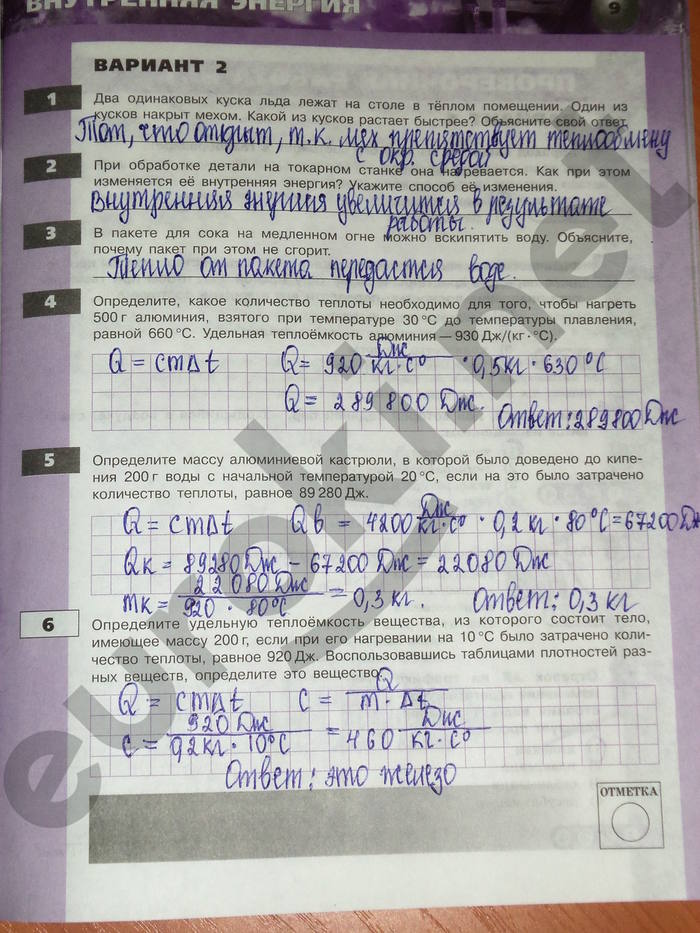 ВНУТРЕННЯЯ ЭНЕРГИЯ
9
ВАРИАНТ 2
1
Два одинаковых куска льда лежат на столе в тёплом помещении. Один из
кусков накрыт мехом. Какой из кусков растает быстрее? Объясните свой ответ.
Тот, что открыт, т.к. мех препятствует теплообмену
с окр. средой
2
При обработке детали на токарном станке она нагревается. Как при этом
изменяется её внутренняя энергия? Укажите способ её изменения.
Внутренняя энергия увеличится в результате
работы.
3
В пакете для сока на медленном огне можно вскипятить воду. Объясните,
почему пакет при этом не сгорит.
Тепло от пакета передастся воде.
4
Определите, какое количество теплоты необходимо для того, чтобы нагреть
500 г алюминия, взятого при температуре 30 °С до температуры плавления,
равной 660 °С. Удельная теплоёмкость алюминия — 930 Дж/(кг · °С).
Q = cmΔt Q = 920 Дж/кг·С° · 0,5кг · 630 °С
Q = 289 800 Дж. Ответ: 289800 Дж
5
Определите массу алюминиевой кастрюли, в которой было доведено до кипе-
ния 200 г воды с начальной температурой 20 °С, если на это было затрачено
количество теплоты, равное 89 280 Дж.
Q = cmΔt Qв = 4200 Дж/кг·С° · 0,2 кг · 80 °С = 67200 Дж
Qк = 89280 Дж - 67200 Дж = 22080 Дж
mк = 22080 Дж/920 · 80°С = 0,3 кг. Ответ: 0,3 кг
6
Определите удельную теплоёмкость вещества, из которого состоит тело,
имеющее массу 200 г, если при его нагревании на 10 °С было затрачено коли-
чество теплоты, равное 920 Дж. Воспользовавшись таблицами плотностей раз-
ных веществ, определите это вещество.
Q = cmΔt c = Q/m · Δt
c = 920 Дж/0,2 кг · 10°С = 460 Дж/кг·С°
Ответ: это железо
ОТМЕТКА
euroki.net